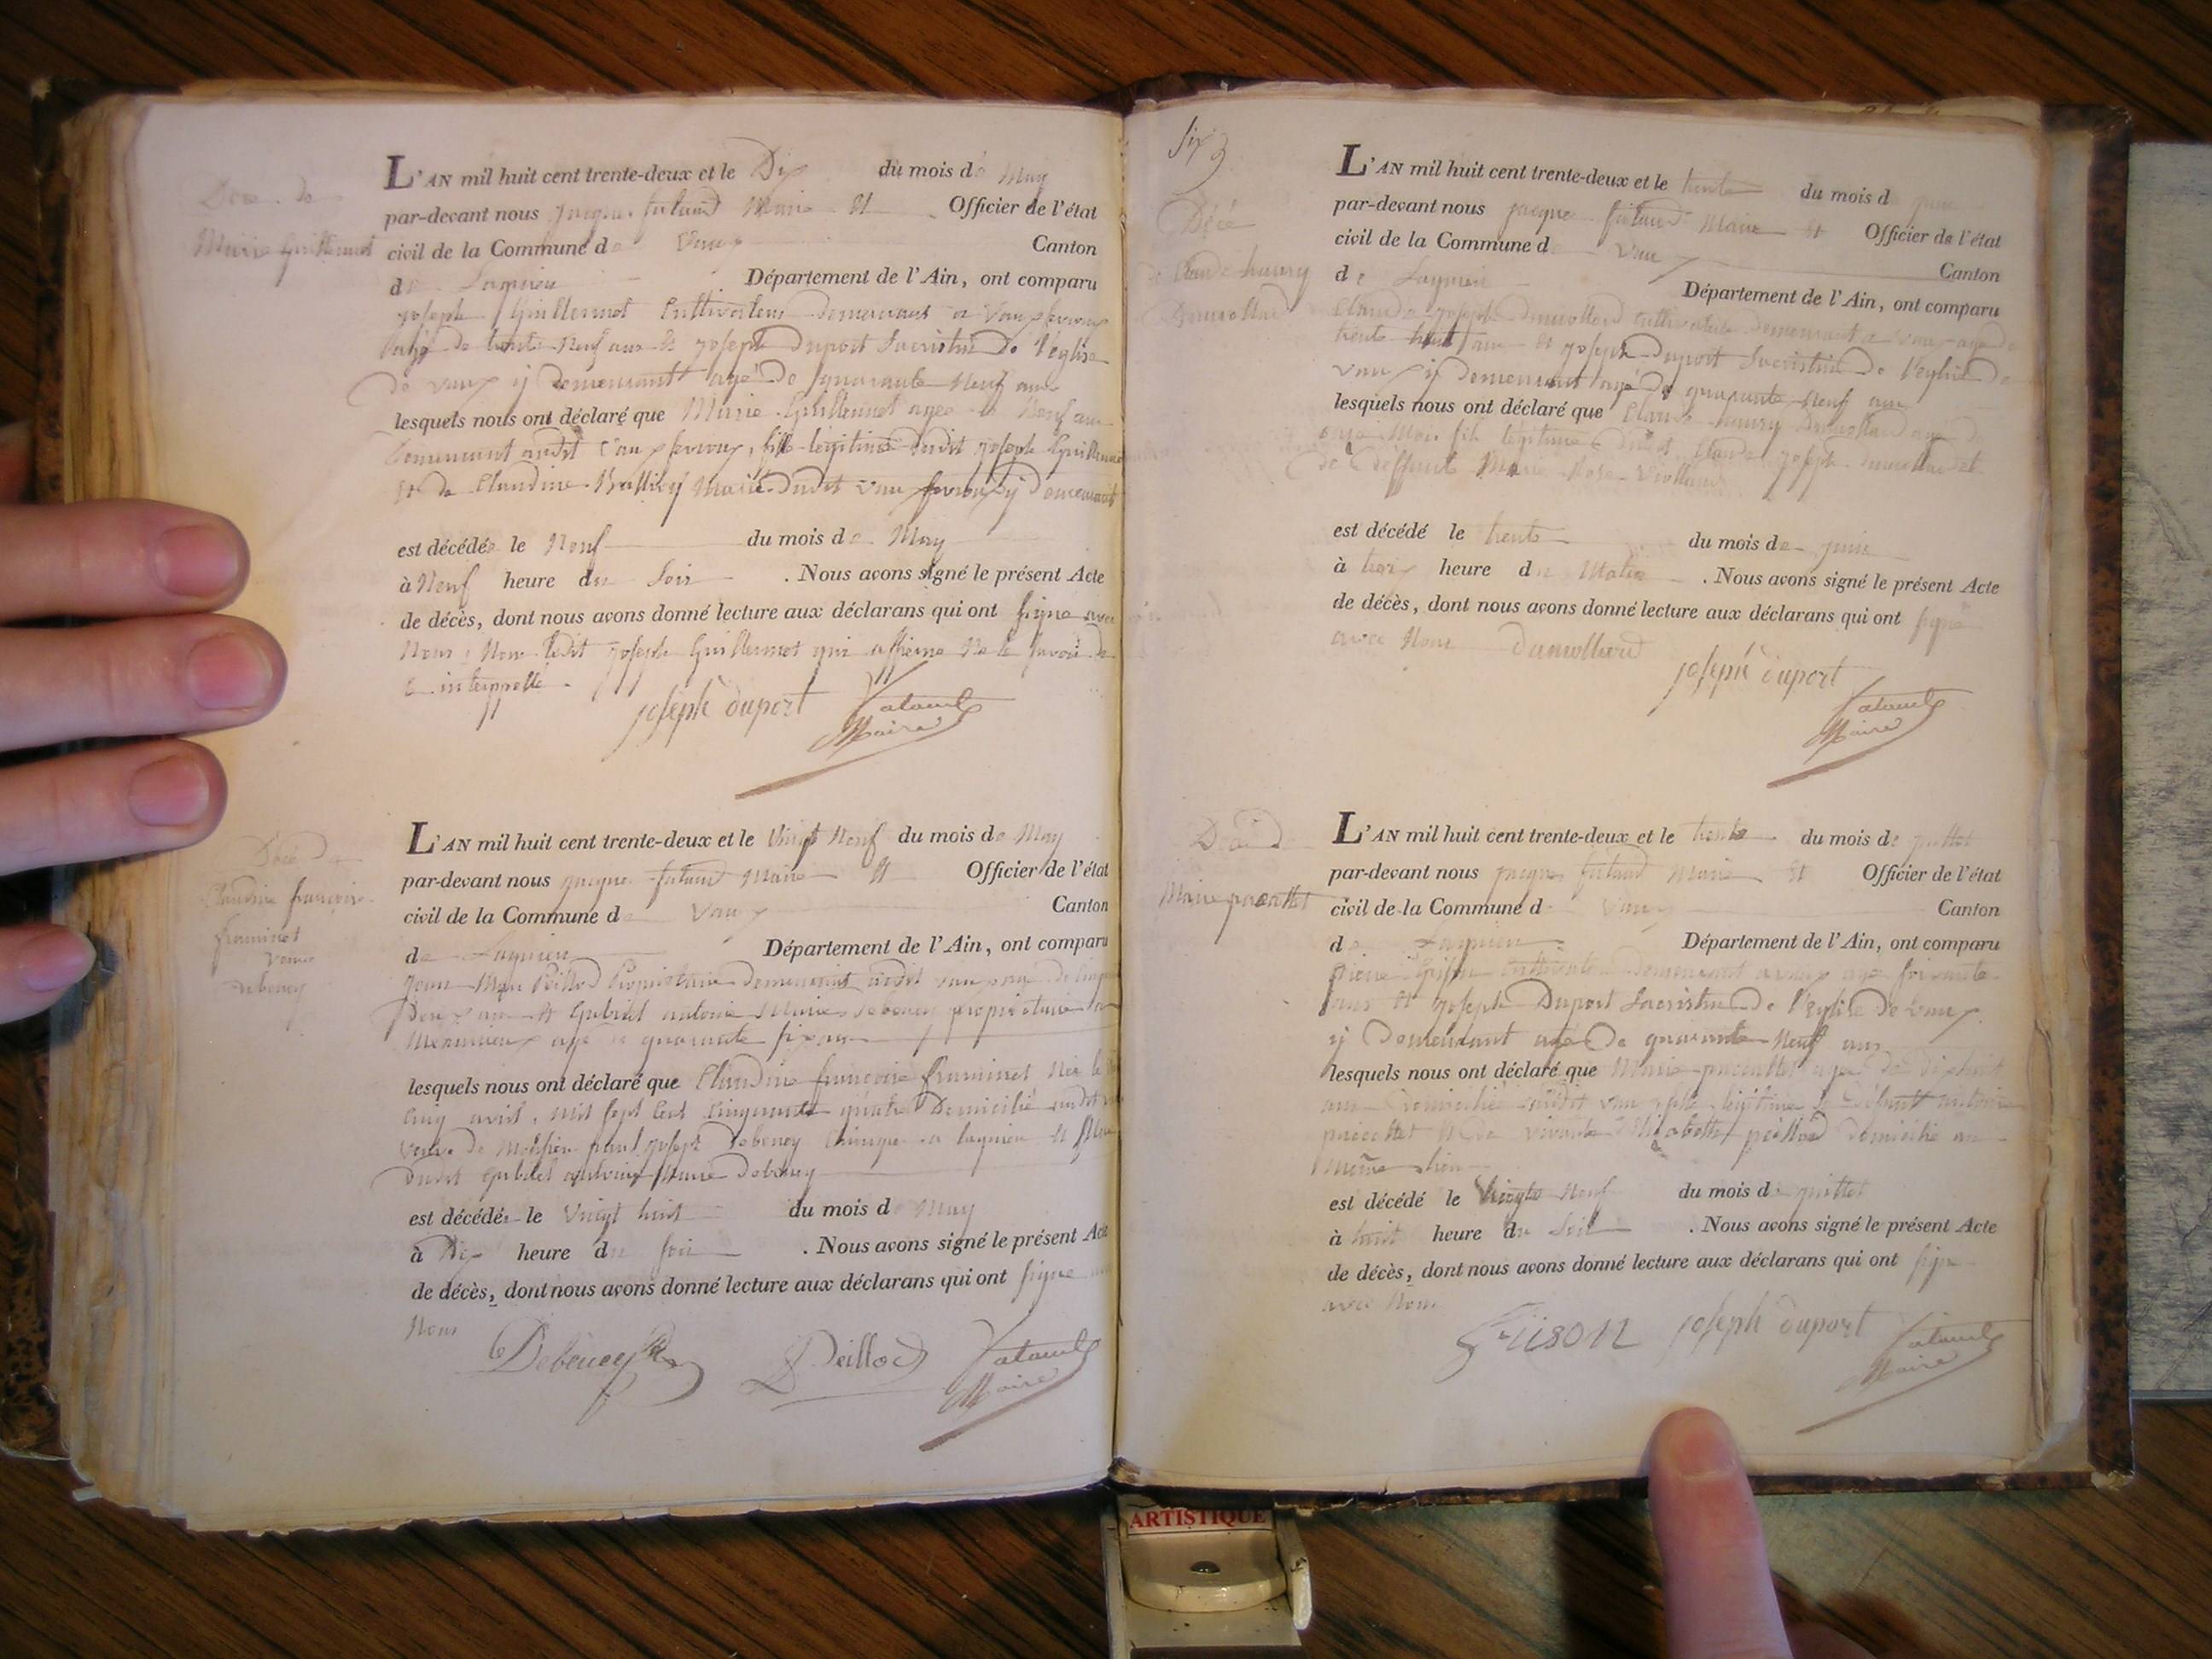 Marie Guillermet
L'AN mil huit cent trente-deux et le Dix du mois de May
par-devant nous jacque falaud Maire et Officier de l'état
civil de la Commune de Vaux Canton
de Lagnieu Département de l'Ain, ont comparu
joseph Guillermet Cultivateur demeurant a Vaux fevroux
agé de trente Neuf ans et joseph duport Sacristin De l'eglise
de vaux y demeurant agé De quarante Neuf ans
lesquels nous ont déclaré que Marie Guillermet agee de Neuf ans
Demeurant audit Vaux fevroux, fille légitime dudit joseph Guillermet
et de Claudine Marie dudit Vaux fevroux y demeurant
est décédée le Neuf du mois de May
à Neuf heure du Soir . Nous avons signé le présent Acte
de décès, dont nous avons donné lecture aux déclarans qui ont signe avec
Nous, Non ledit joseph Guillermet qui affirme Ne le savoir de
ce interpellé.
joseph duport falaud
Maire
Claudine françoise
framinet
veuve
debeney
L'AN mil huit cent trente-deux et le Vingt Neuf du mois de May
par-devant nous jacque falaud Maire et Officier de l'état
civil de la Commune de Vaux Canton
de Lagnieu Département de l'Ain, ont comparu
Jean Peillod Propriétaire demeurant audit vaux agé de
Deux ans et Gabriel antoine Marie debeney propriétaire
Meximieux agé de quarante six ans
lesquels nous ont déclaré que Claudine françoise framinet Née le
Cinq avril, mil sept Cent Cinquante quatre Domicilié audit
Veuve de Monsieur paul joseph debeney a lagnieu et Mere
dudit gabriel antoine Marie debeney
est décédée le Vingt huit du mois de May
à Dix heure du soir . Nous avons signé le présent Acte
de décès, dont nous avons donné lecture aux déclarans qui ont signe
Nous
Debeney Peillod falaud
Maire
six
Décé
de Claude haury
Dumollard
L'AN mil huit cent trente-deux et le trente du mois d juin
par-devant nous jacque falaud Maire et Officier de l'état
civil de la Commune d Vaux Canton
de Lagnieu Département de l'Ain, ont comparu
Claude joseph dumollard cultivateur demeurant a vaux age de
trente huit ans et joseph duport Sacristin De l'eglise De
vaux y demeurant agé De quarante Neuf ans
lesquels nous ont déclaré que Claude haury Dumollard agé de
onze Mois fils légitime dudit Claude joseph dumollard et
de deffunte Marie Rose Violland
est décédé le trente du mois de juin
à trois heure du Matin . Nous avons signé le présent Acte
de décès, dont nous avons donné lecture aux déclarans qui ont signé
avec Nous dumollard
joseph duport
falaud
Maire
Marie pacattet
L'AN mil huit cent trente-deux et le trente du mois de juillet
par-devant nous jacque falaud Maire et Officier de l'état
civil de la Commune d Vaux Canton
de Lagnieu Département de l'Ain, ont comparu
cultivateur demeurant a vaux age soixante
ans et joseph Duport Sacristin De l'eglise De vaux
y Demeurant age De quarante Neuf ans
lesquels nous ont déclaré que Marie pacattet agee de dix huit
ans Domiciliée audit vaux fille légitime de Défunt antoine
pacattet et de vivante Elisabeth peillod domicilié au
même lieu
est décédé le Vingt Neuf du mois de juillet
à huit heure du Soir . Nous avons signé le présent Acte
de décès, dont nous avons donné lecture aux déclarans qui ont signe
avec Nous
joseph duport falaud
Maire
ARTISTIQUE